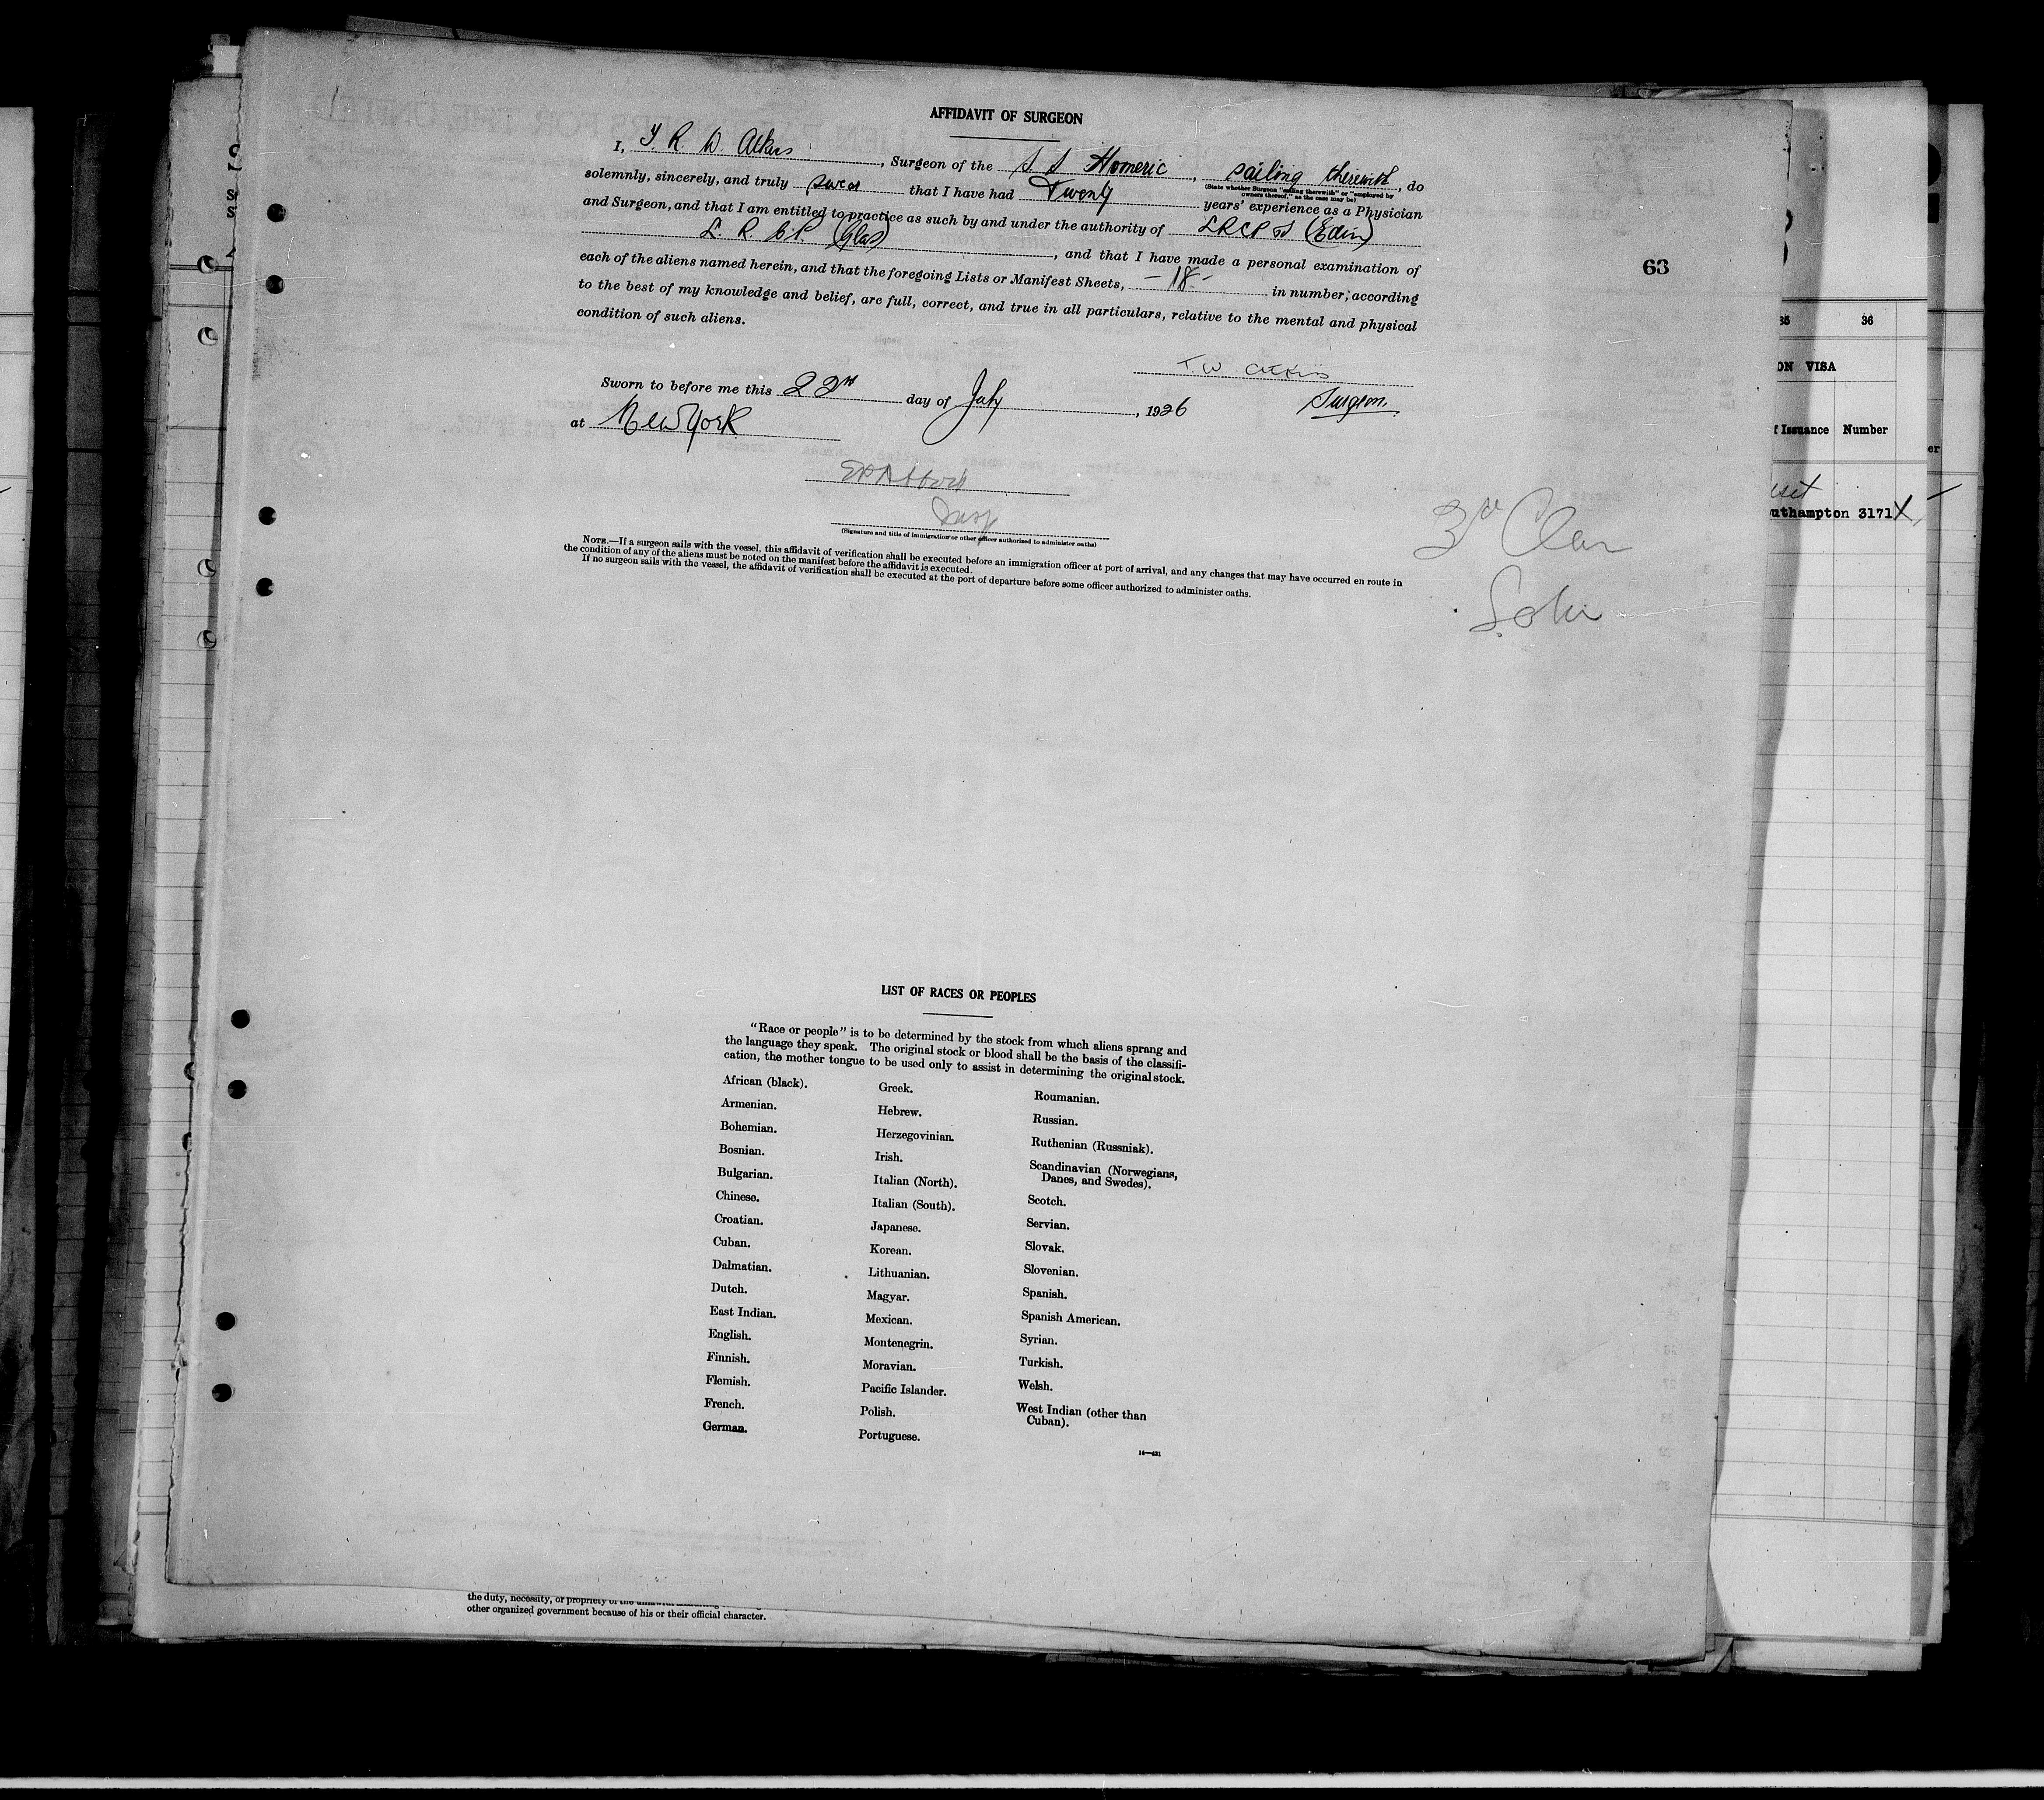 AFFIDAVIT OF SURGEON
I, T R. W. Atkins, Surgeon of the S S Homeric, sailing therewith, do
(State whether Surgeon "sailing therewith" or "employed by owners thereof," as the case may be)
solemnly, sincerely, and truly swear that I have had Twenty years' experience as a Physician
and Surgeon, and that I am entitled to practice as such by and under the authority of LRCP S (Edin)
L. R. F.P. (Glas), and that I have made a personal examination of
each of the aliens named herein, and that the foregoing Lists or Manifest Sheets, -18- in number, according
to the best of my knowledge and belief, are full, correct, and true in all particulars, relative to the mental and physical
condition of such aliens.
63
T. W. Atkins
Surgeon.
Sworn to before me this 22nd day of July, 1926
at New York
Insp
(Signature and title of immigration or other officer authorized to administer oaths)
NOTE.—If a surgeon sails with the vessel, this affidavit of verification shall be executed before an immigration officer at port of arrival, and any changes that may have occurred en route in
the condition of any of the aliens must be noted on the manifest before the affidavit is executed.
If no surgeon sails with the vessel, the affidavit of verification shall be executed at the port of departure before some officer authorized to administer oaths.
3d Class
LIST OF RACES OR PEOPLES
"Race or people" is to be determined by the stock from which aliens sprang and
the language they speak. The original stock or blood shall be the basis of the classifi-
cation, the mother tongue to be used only to assist in determining the original stock.
African (black).
Armenian.
Bohemian.
Bosnian.
Bulgarian.
Chinese.
Croatian.
Cuban.
Dalmatian.
Dutch.
East Indian.
English.
Finnish.
Flemish.
French.
German.
Greek.
Hebrew.
Herzegovinian.
Irish.
Italian (North).
Italian (South).
Japanese.
Korean.
Lithuanian.
Magyar.
Mexican.
Montenegrin.
Moravian.
Pacific Islander.
Polish.
Portuguese.
Roumanian.
Russian.
Ruthenian (Russniak).
Scandinavian (Norwegians,
Danes, and Swedes).
Scotch.
Servian.
Slovak.
Slovenian.
Spanish.
Spanish American.
Syrian.
Turkish.
Welsh.
West Indian (other than
Cuban).
14—431
the duty, necessity, or propriety of the
other organized government because of his or their official character.
35 36
ON VISA
f Issuance Number
uthampton 3171